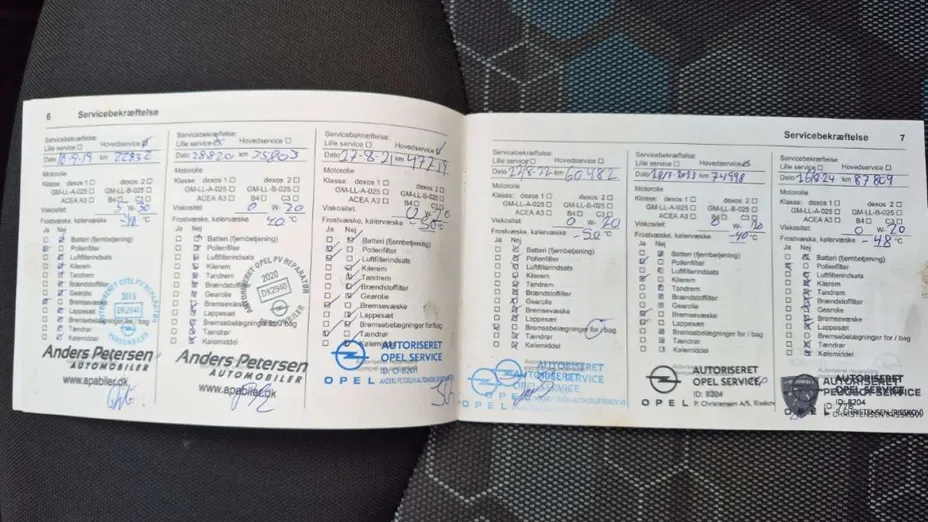 6 Servicebekræftelse
Servicebekræftelse:
Lille service Hovedservice
Dato 10-9-19 km 22932
Motorolie
Klasse: dexos 1 dexos 2
GM-LL-A-025 GM-LL-B-025
ACEA A3 B4 C3
Viskositet 5 W-30
Frostvæske, kølervæske -40 °C
Ja Nej
Batteri (fjernbetjening)
Pollenfilter
Luftfilterindsats
Kilerem
Tandrem
Brændstoffilter
Gearolie
Bremsevæske
Lappesæt
Bremsebelægninger for / bag
Tændrør
Kølemiddel
AUTORISERET OPEL PV REPARATØR
2019
DK2940
PERSONBILER
Anders Petersen
AUTOMOBILER
www.apabiler.dk
Servicebekræftelse:
Lille service Hovedservice
Dato 28820 km 35803
Motorolie
Klasse: dexos 1 dexos 2
GM-LL-A-025 GM-LL-B-025
ACEA A3 B4 C3
Viskositet: 0 W- 20
Frostvæske, kølervæske 40 °C
Ja Nej
Batteri (fjernbetjening)
Pollenfilter
Luftfilterindsats
Kilerem
Tandrem
Brændstoffilter
Gearolie
Bremsevæske
Lappesæt
Bremsebelægninger for / bag
Tændrør
Kølemiddel
AUTORISERET OPEL PV REPARATØR
2020
DK2940
PERSONBILER
Anders Petersen
AUTOMOBILER
www.apabiler.dk
Servicebekræftelse:
Lille service Hovedservice
Dato 27-8-21 km 47719
Motorolie
Klasse: dexos 1 dexos 2
GM-LL-A-025 GM-LL-B-025
ACEA A3 B4 C3
Viskositet: 0 W-20
Frostvæske, kølervæske -50 °C
Ja Nej
Batteri (fjernbetjening)
Pollenfilter
Luftfilterindsats
Kilerem
Tandrem
Brændstoffilter
Gearolie
Bremsevæske
Lappesæt
Bremsebelægninger for/bag
Tændrør
Kølemiddel
AUTORISERET
OPEL SERVICE
ID: 8204
OPEL
Servicebekræftelse 7
Servicebekræftelse:
Lille service Hovedservice
km 60482
Motorolie
Klasse: dexos 1 dexos 2
GM-LL-A-025 GM-LL-B-025
ACEA A3 B4 C3
Viskositet: 0 W-20
Frostvæske, kølervæske -50 °C
Ja Nej
Batteri (fjernbetjening)
Pollenfilter
Luftfilterindsats
Kilerem
Tandrem
Brændstoffilter
Gearolie
Bremsevæske
Lappesæt
Bremsebelægninger for / bag
Tændrør
Kølemiddel
AUTORISERET
OPEL SERVICE
OPEL
Servicebekræftelse:
Lille service Hovedservice
km 74998
Motorolie
Klasse: dexos 1 dexos 2
GM-LL-A-025 GM-LL-B-025
ACEA A3 B4 C3
Viskositet: 0 W- 20
Frostvæske, kølervæske -40 °C
Ja Nej
Batteri (fjernbetjening)
Pollenfilter
Luftfilterindsats
Kilerem
Tandrem
Brændstoffilter
Gearolie
Bremsevæske
Lappesæt
Bremsebelægninger for / bag
Tændrør
Kølemiddel
AUTORISERET
OPEL SERVICE
ID: 8204
OPEL P. Christensen A/S, Risskov
Servicebekræftelse:
Lille service Hovedservice
Dato 16824 km 87809
Motorolie
Klasse: dexos 1 dexos 2
GM-LL-A-025 GM-LL-B-025
ACEA A3 B4 C3
Viskositet: 0 W- 20
Frostvæske, kølervæske -48 °C
Ja Nej
Batteri (fjernbetjening)
Pollenfilter
Luftfilterindsats
Kilerem
Tandrem
Brændstoffilter
Gearolie
Bremsevæske
Lappesæt
Bremsebelægninger for / bag
Tændrør
Kølemiddel
AUTORISERET
PEUGEOT SERVICE
ID: 8204